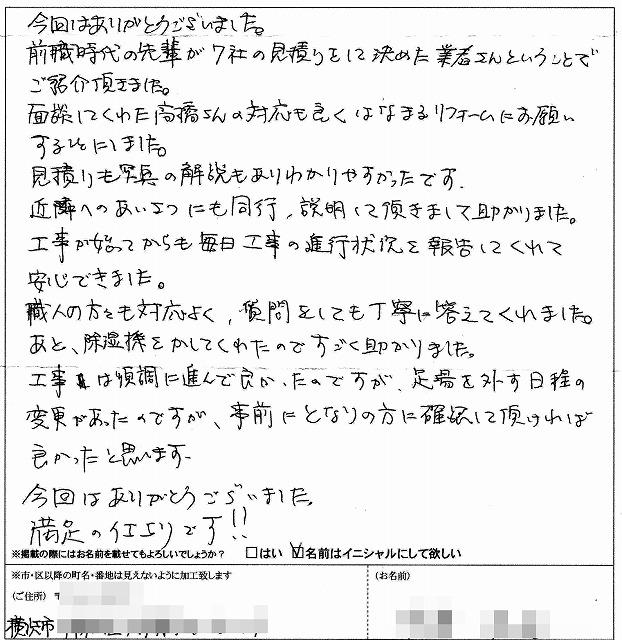 今回はありがとうございました。
前職時代の先輩が7社の見積りをして決めた業者さんということで
ご紹介頂きました。
面談してくれた高橋さんの対応も良くはなまるリフォームにお願い
することにしました。
見積りも写真の解説もありわかりやすかったです.
近隣へのあいさつにも同行、説明して頂きまして助かりました。
工事が始ってからも毎日工事の進行状況を報告してくれて
安心できました。
職人の方々も対応よく、質問をしても丁寧に答えてくれました。
あと、除湿機をかしてくれたのですごく助かりました。
工事は順調に進んで良かったのですが、足場を外す日程の
変更があったのですが、事前にとなりの方に確認して頂ければ
良かったと思います.
今回はありがとうございました。
満足の仕上りです!!
※掲載の際にはお名前を載せてもよろしいでしょうか? □はい ☑名前はイニシャルにして欲しい
※市・区以降の町名・番地は見えないように加工致します (お名前)
(ご住所) 〒
横浜市